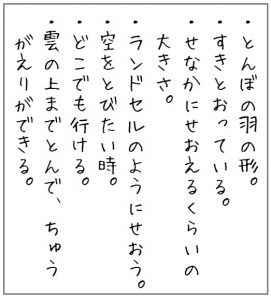 ・とんぼの羽の形。
・すきとおっている。
・せなかにせおえるくらいの
大きさ。
・ランドセルのようにせおう。
・空をとびたい時。
・どこでも行ける。
・雲の上までとんで、ちゅう
がえりができる。